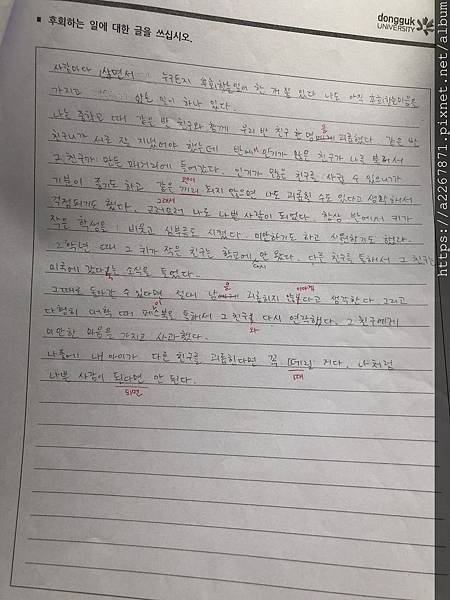 ■ 후회하는 일에 대한 글을 쓰십시오.
dongguk
UNIVERSITY
사람마다 살면서 누구든지 후회하는 일이 한 개 쯤 있다. 나도 아직 후회하는 마음을
가지고 있는 일이 하나 있다.
나는 중학교 때 같은 반 친구와 함께 우리 반 친구 한 명을 괴롭혔다. 같은 반
친구니까 서로 잘 지냈어야 했는데 반에서 인기가 많은 친구가 나를 불러서
그 친구가 만든 패거리에 들어갔다. 인기가 많은 친구를 사귈 수 있으니까
기분이 좋기도 하고 같은 편이 되지 않으면 나도 괴롭힐 수도 있다고 생각해서
걱정되기도 했다. 그래서 나도 나쁜 사람이 되었다. 항상 반에서 키가
작은 학생을 비웃고 심부름도 시켰다. 미안하기도 하고 시원하기도 하였다.
2학년 때 그 키가 작은 친구는 학교에 다시 안 왔다. 다른 친구를 통해서 그 친구는
미국에 갔다는 소식을 들었다.
그때로 돌아갈 수 있다면 절대 남을 괴롭히지 않겠다고 생각한다. 그리고
다행히 대학 때 페이스북을 통해서 그 친구와 다시 연락했다. 그 친구에게
미안한 마음을 가지고 사과했다.
나중에 내 아이가 다른 친구를 괴롭힌다면 꼭 때릴 거다. 나처럼
나쁜 사람이 된다면 안 된다.
되면
https://a2267871.pixnet.net/album